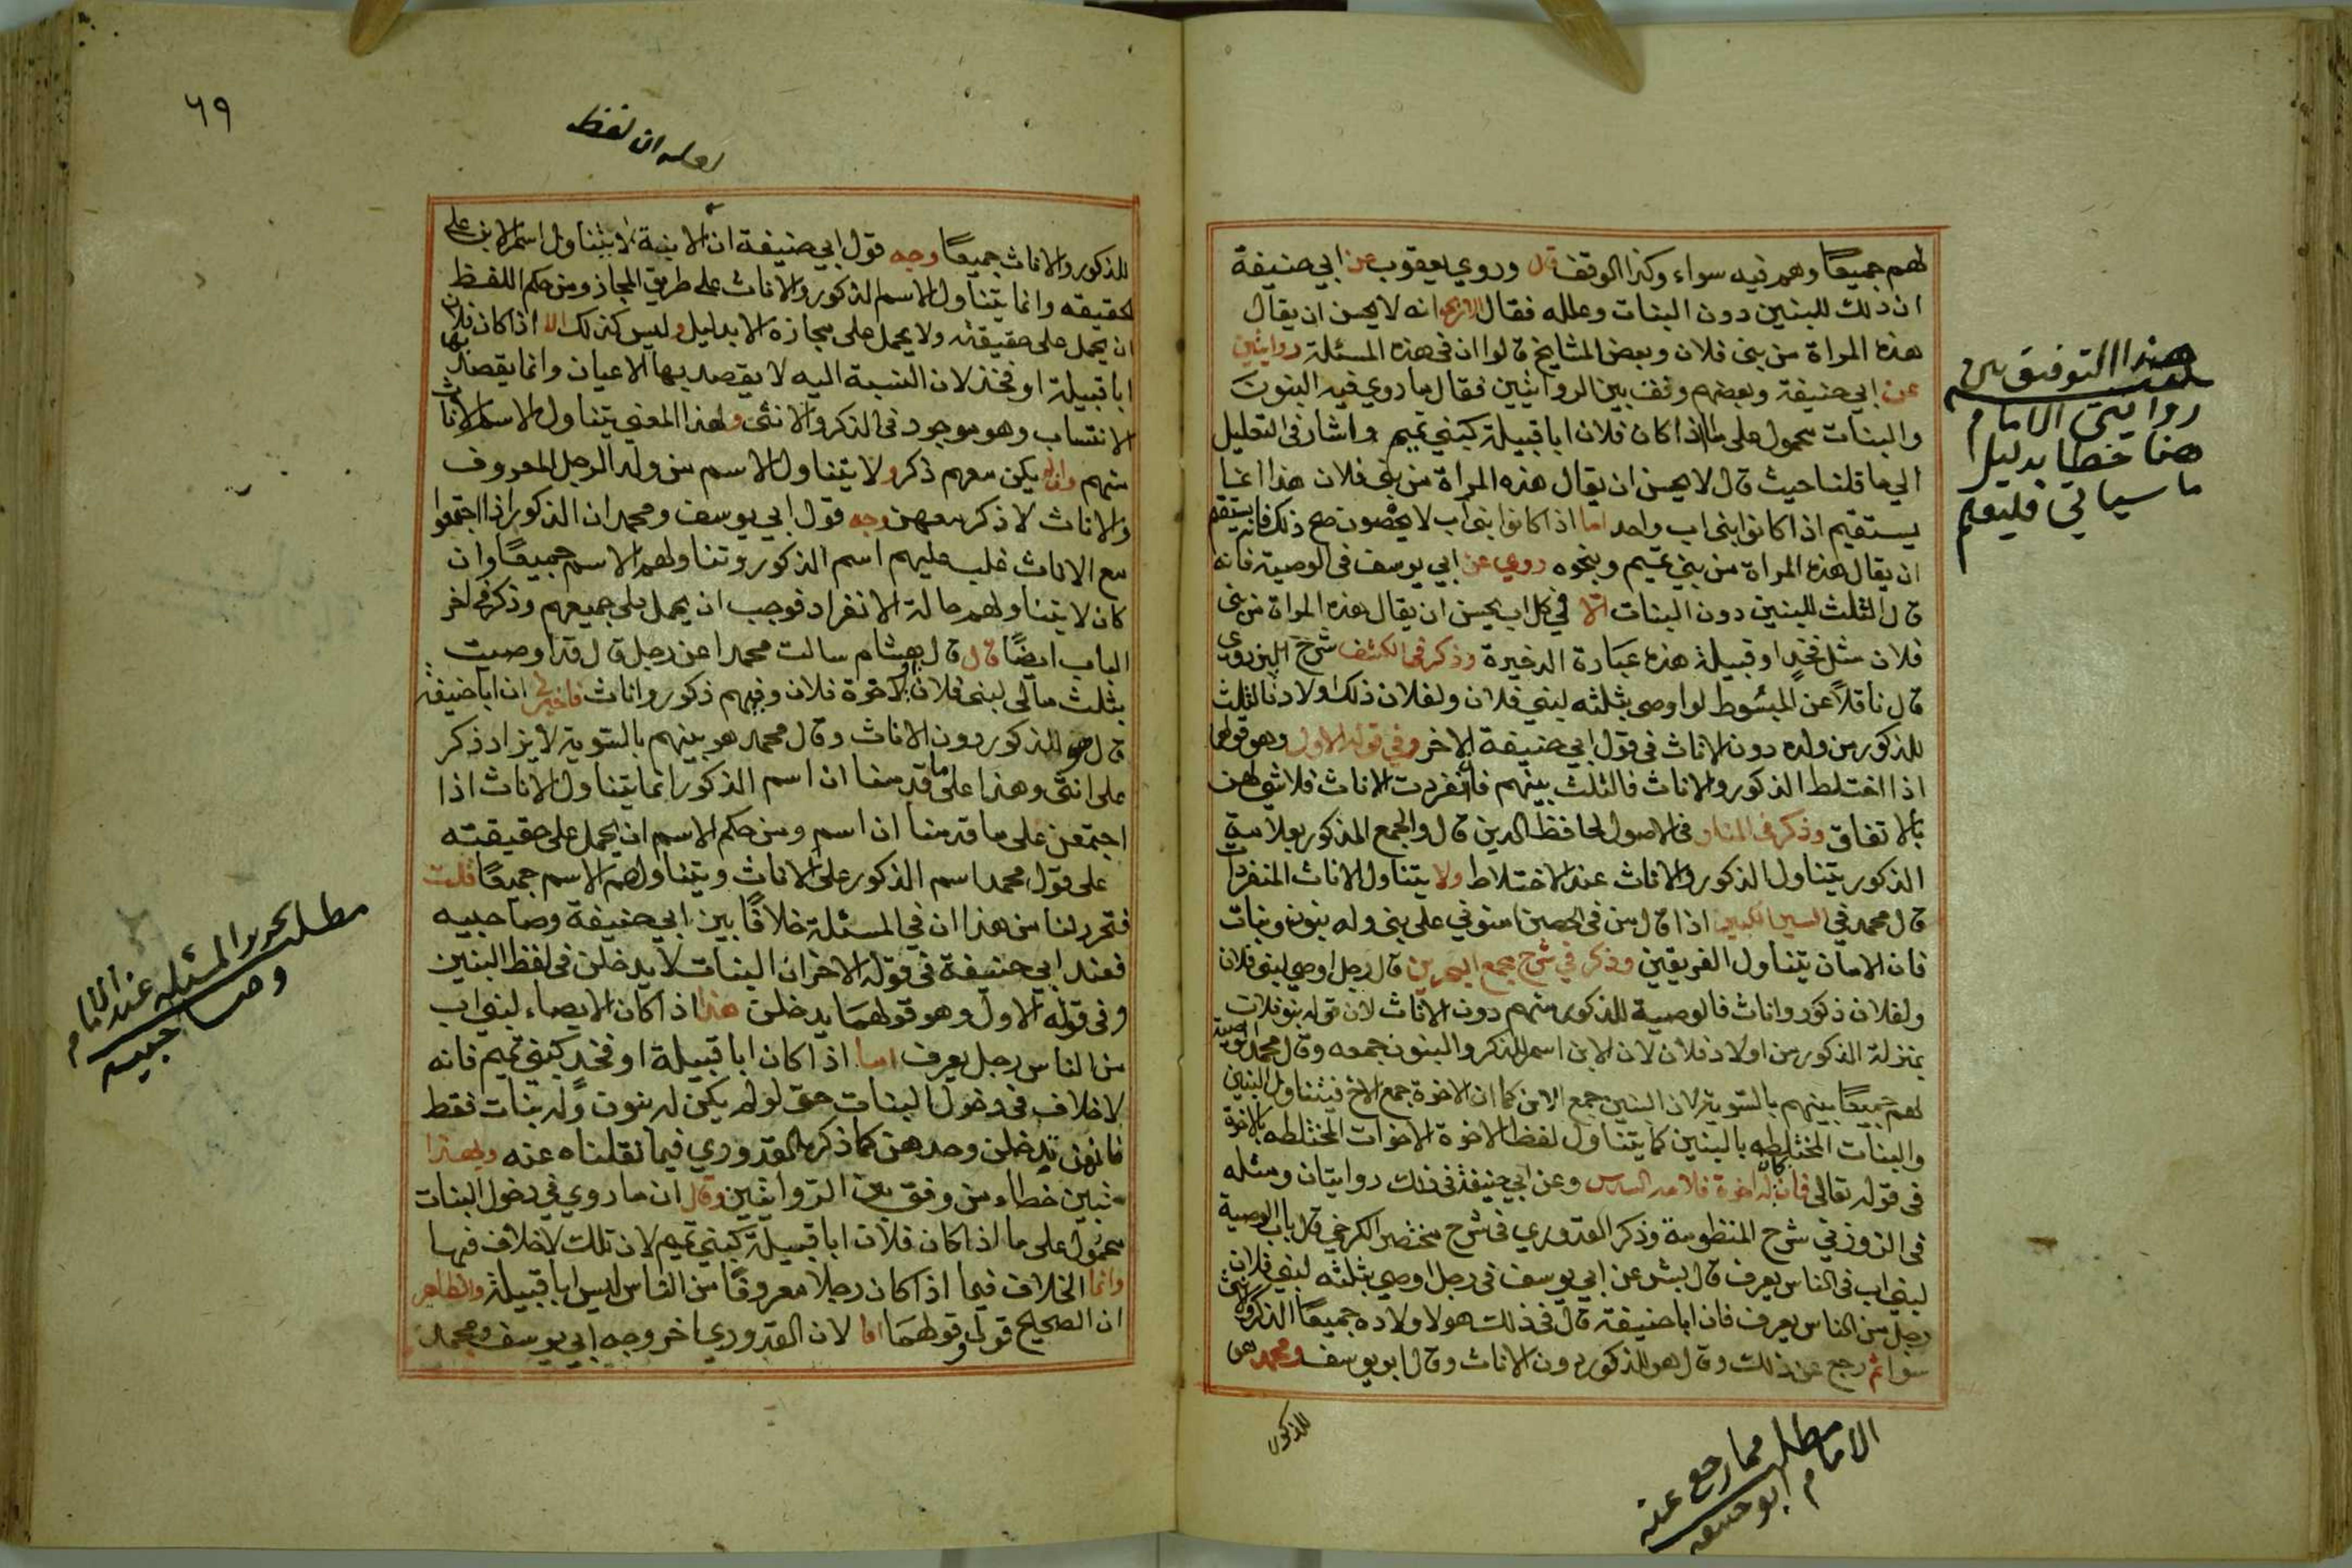 لهم جميعًا وهم فيه سواء وكذا الوقف قال وروي يعقوب عن ابي حنيفة
ان ذلك للبنين دون البنات وعلله فقال انه لا يحسن ان يقال
هذه المراة من بني فلان وبعض المشايخ قالوا ان في هذه المسئلة روايتين
عن ابي حنيفة وبعضهم وفق بين الروايتين فقال ما روي فيه البنون
والبنات محمول على ما اذا كان فلان ابا قبيلة كبني تميم واشار في التعليل
الي ما قلنا حيث قال لا يحسن ان يقال هذه المراة من بني فلان هذا انما
يستقيم اذا كانوا بني اب واحد اما اذا كانوا بني اب لا يحصون صح ذلك فانه يستقيم
ان يقال هذه المراة من بني تميم ونحوه روي عن ابي يوسف في الوصية فانه
قال الثلث للبنين دون البنات الا في كل اب يحسن ان يقال هذه المراة من بني
فلان مثل فخذ او قبيلة هذه عبارة الذخيرة وذكر في الكشف شرح البزدوي
قال ناقلاً عن المبسوط لو اوصى بثلثه لبني فلان ولفلان ذلك اولاد فالثلث
للذكور من ولده دون الاناث في قول ابي حنيفة الاخر وفي قوله الاول وهو قولهما
اذا اختلط الذكور والاناث فالثلث بينهم فان انفردت الاناث فلا شي لهن
بالاتفاق وذكر في المنار في الاصول لحافظ الدين قال والجمع المذكور بعلامة
الذكور يتناول الذكور والاناث عند الاختلاط ولا يتناول الاناث المنفردات
قال محمد في السير الكبير اذا قال من في الحصن امنوني على بني وله بنون وبنات
فان الامان يتناول الفريقين وذكر في شرح مجمع البحرين قال رجل اوصي لبني فلان
ولفلان ذكور واناث فالوصية للذكور منهم دون الاناث لان قوله بنو فلان
بمنزلة الذكور من اولاد فلان لان الابن اسم للذكر والبنون جمعه وقال محمد الوصية
لهم جميعًا بينهم بالسوية لان البنين جمع الابن كما ان الاخوة جمع الاخ فيتناول البنين
والبنات المختلطه بالبنين كما يتناول لفظ الاخوة الاخوات المختلطه بالاخوة
في قوله تعالى فان كان له اخوة فلامه السدس وعن ابي حنيفة في ذلك روايتان ومثله
في الزوزني شرح المنظومة وذكر القدوري في شرح مختصر الكرخي قال باب الوصية
لبني اب في الناس يعرف قال بشر عن ابي يوسف في رجل اوصي بثلثه لبني فلان
رجل من الناس يعرف فان ابا حنيفة قال في ذلك هو لاولاده جميعًا الذكر والانثى
سوا ثم رجع عن ذلك وقال هو للذكور دون الاناث وقال ابو يوسف ومحمد هي
للذكور
هذا التوفيق بين
روايتي الامام
هنا خطا بدليل
ما سياتي فليعلم
مطلب مما رجع عنه
الامام ابو حنيفه
٦٩
لعله ان لفظ
للذكور والاناث جميعًا وجه قول ابي حنيفة ان الابنية لا يتناول اسم الابن على
الحقيقه وانما يتناول الاسم الذكور والاناث على طريق المجاز ومن حكم اللفظ
ان يحمل على حقيقته ولا يحمل على مجازه الا بدليل وليس كذلك الا اذا كان فلان
ابا قبيلة او فخذ لان النسبة اليه لا يقصد بها الاعيان وانما يقصد بها
الانتساب وهو موجود في الذكر والانثى ولهذا المعني يتناول الاسم الاناث
منهم وان لم يكن معهم ذكر ولا يتناول الاسم من ولد الرجل المعروف
والاناث لا ذكر معهن وجه قول ابي يوسف ومحمد ان الذكور اذا اجتمعوا
مع الاناث غلب عليهم اسم الذكور وتناولهم الاسم جميعًا وان
كان لا يتناولهم حالة الانفراد فوجب ان يحمل على جميعهم وذكر في اخر
الباب ايضًا قال قال هشام سالت محمدا عن رجل قال قد اوصيت
بثلث مالي لبني فلان او لاخوة فلان وفيهم ذكور واناث فاخبرني ان ابا حنيفة
قال هو للذكور دون الاناث وقال محمد هو بينهم بالسوية لا يزاد ذكر
على انثى وهذا على ما قدمنا ان اسم الذكور انما يتناول الاناث اذا
اجتمعن على ما قدمنا ان اسم ومن حكم الاسم ان يحمل على حقيقته
على قول محمد اسم الذكور على الاناث ويتناولهم الاسم جميعًا قلت
فتحرر لنا من هذا ان في المسئلة خلافًا بين ابي حنيفة وصاحبيه
فعند ابي حنيفة في قوله الاخر ان البنات لا يدخلن في لفظ البنين
وفي قوله الاول وهو قولهما يدخلن هذا اذا كان الايصاء لبني اب
من الناس رجل يعرف اما اذا كان ابا قبيلة او فخد كبني تميم فانه
لا خلاف في دخول البنات حتى لو لم يكن له بنون وله بنات فقط
فانهن يدخلن وحدهن كما ذكره القدوري فيما نقلناه عنه وبهذا
تبين خطاء من وفق بين الروايتين وقال ان ما روي في دخول البنات
محمول على ما اذا كان فلان ابا قبيلة كبني تميم لان تلك لا خلاف فيها
وانما الخلاف فيما اذا كان رجلا معروفًا من الناس ليس ابا قبيلة والظاهر
ان الصحيح قوله وقولهما لان القدوري اخر وجه ابي يوسف ومحمد
مطلب تحرير المسئله عند الامام
وصاحبيه